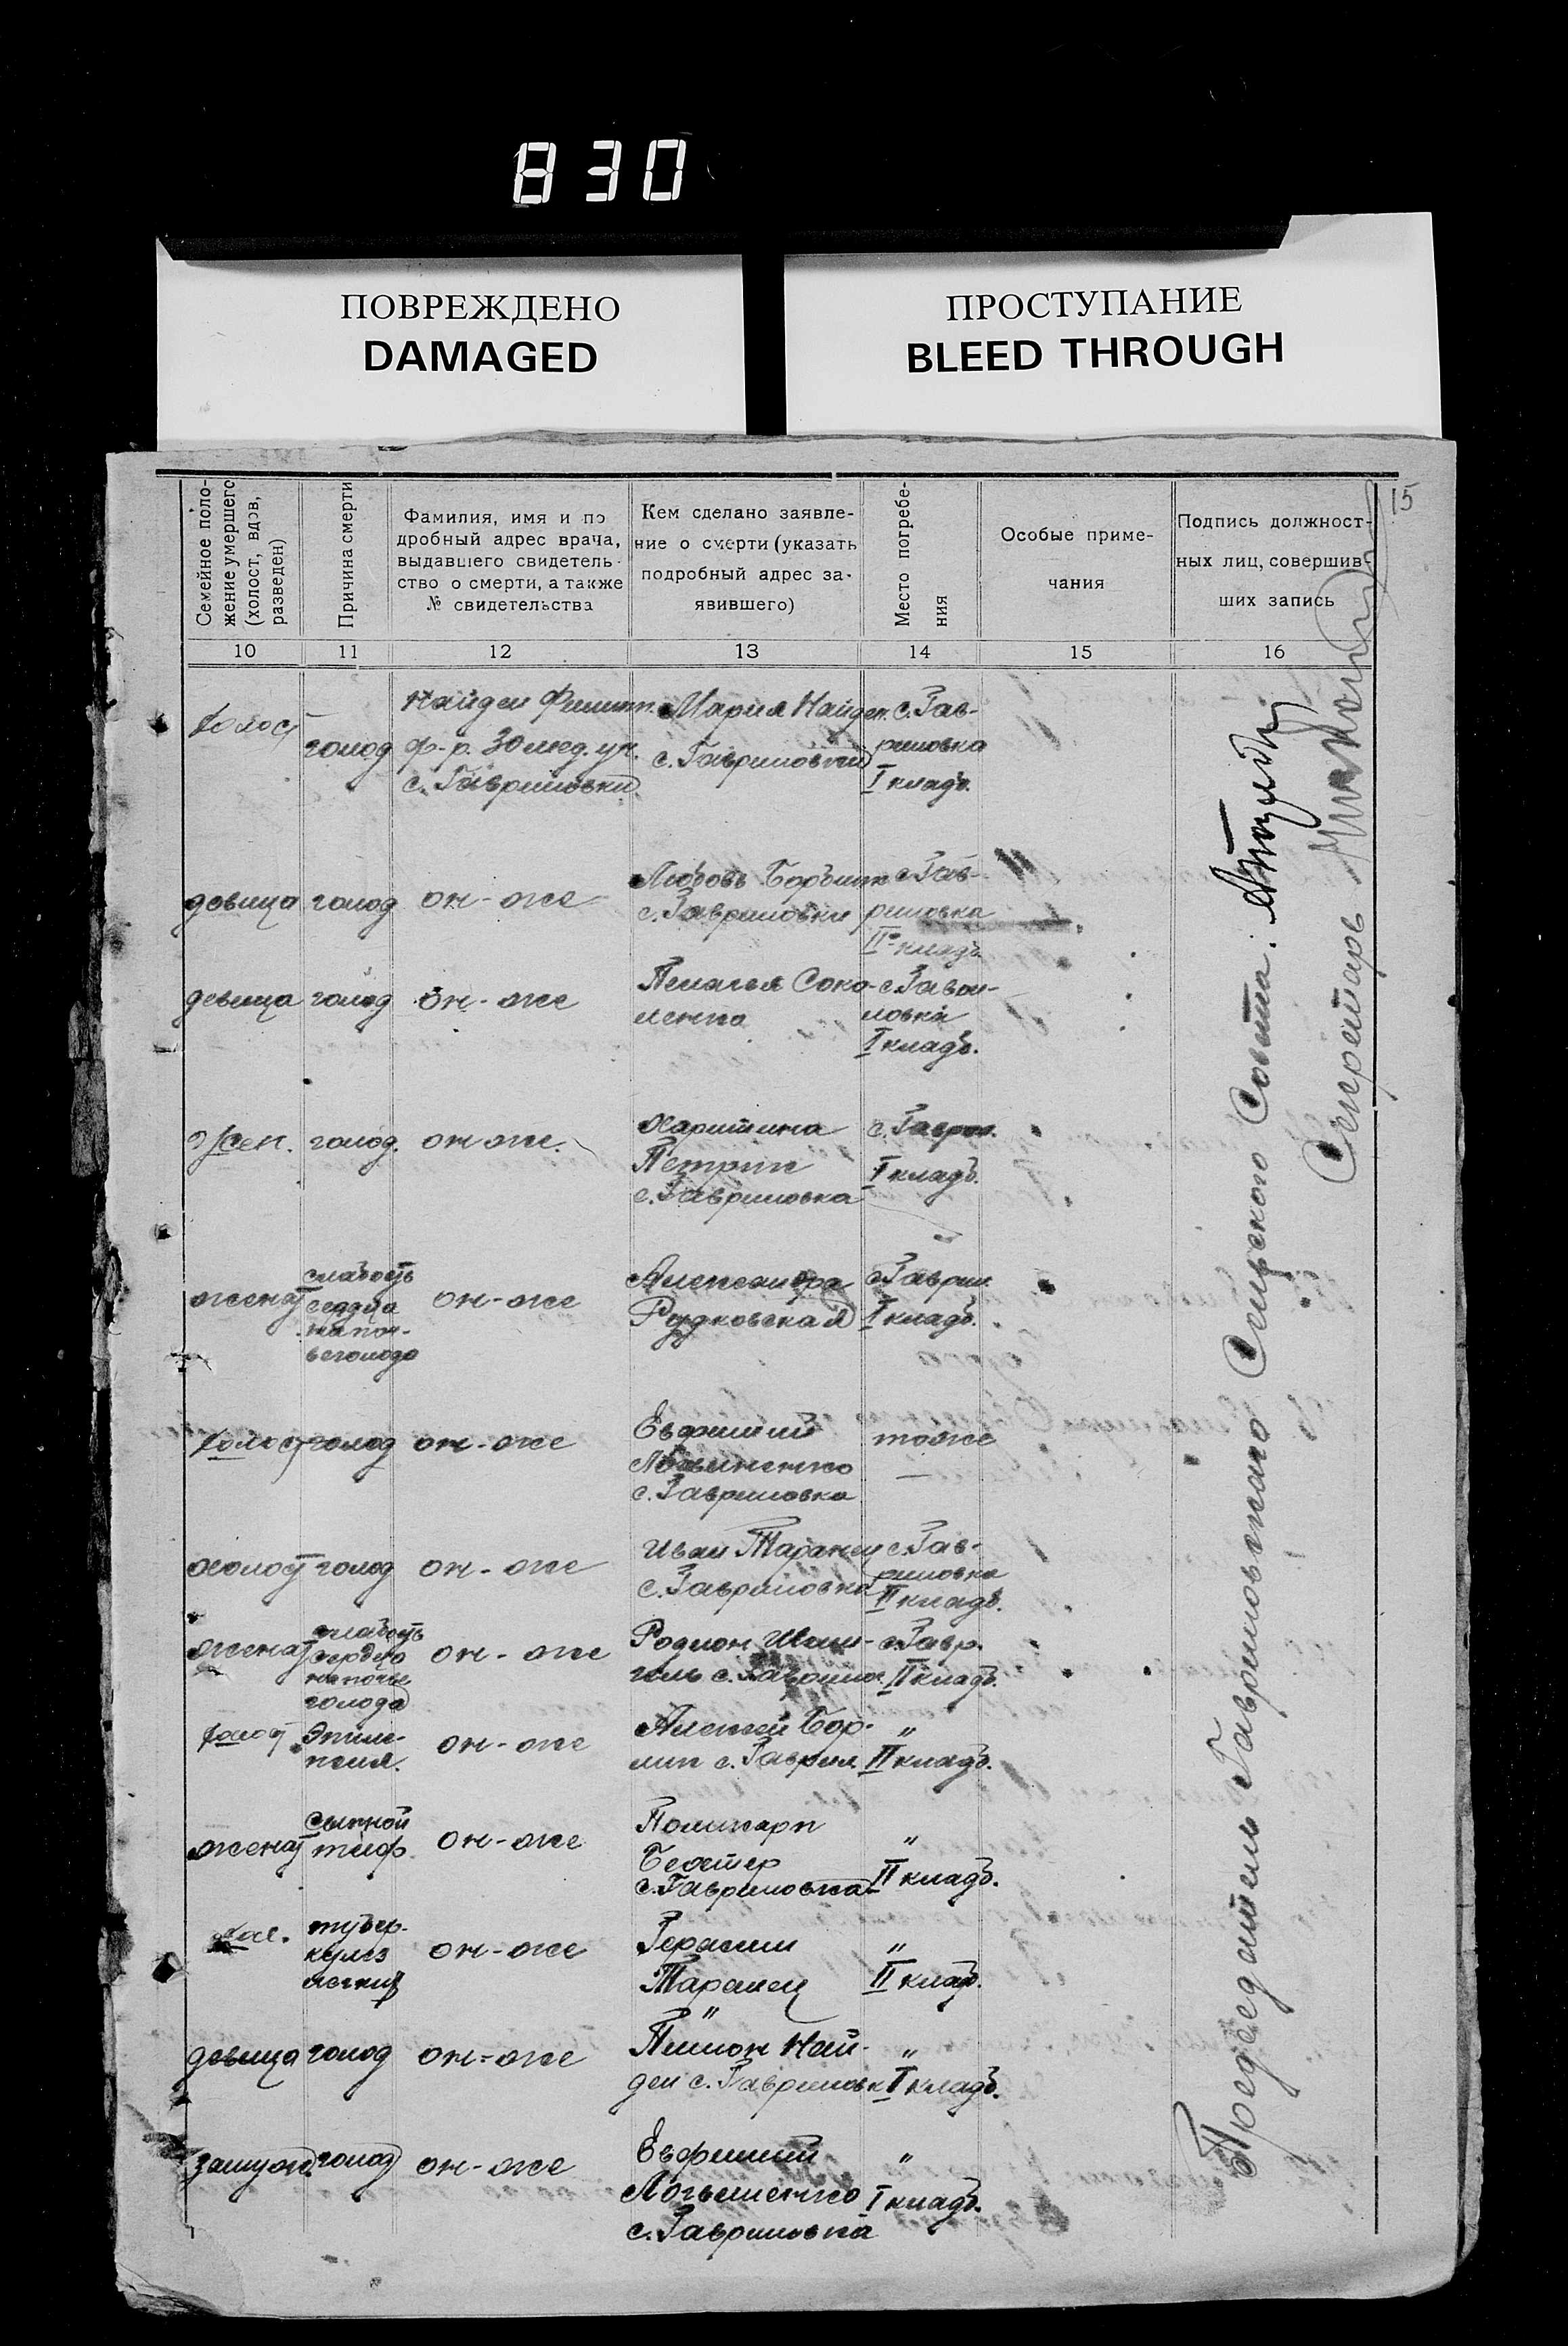 830
ПОВРЕЖДЕНО
DAMAGED
ПРОСТУПАНИЕ
BLEED THROUGH
15
Семейное поло-
жение умершего
(холост, вдов,
разведен)
Причина смерти
Фамилия, имя и по
дробный адрес врача,
выдавшего свидетель-
ство о смерти, а также
№ свидетельства
Кем сделано заявле-
ние о смерти (указать
подробный адрес за-
явившего)
Место погребе-
ния
Особые приме-
чания
Подпись должност-
ных лиц, совершив-
ших запись
10 11 12 13 14 15 16
холост
голод
Найден Филипп.
ф-р. 30 мед. уч.
с. Гавриловки
Мария Найден.
с. Гавриловки
с. Гав-
риловка
I кладб.
девица голод он-же
Любовь
с. Гавриловки
с. Гав-
риловка
II кладб.
девица голод он-же
Пелагея Соко-
ленко
с. Гаври-
ловка
I кладб.
жен. голод. он же.
Харитина
Петрик
с. Гавриловка
с. Гаврил.
I кладб.
женат
слабость
сердца
на поч-
ве голода
он-же
Александра
Рудковская
с. Гаврил.
I кладб.
холост голод он-же
Евфимий
с. Гавриловка
тоже
холост голод он-же
Иван Таранец
с. Гавриловка
с. Гав-
риловка
II кладб.
женат
слабость
сердца
на почве
голода
он-же
Родион
с. Гаврилов.
с. Гавр.
II кладб.
холост
Эпиле-
псия.
он-же
Алексей Бор-
с. Гаврил.
"
II кладб.
женат
сыпной
тиф
он-же
Поликарп
с. Гавриловка
"
II кладб.
хол.
тубер-
кулез
легких
он-же
Герасим
Таранец
"
"
II клад.
девица голод он=же
Пимон Най-
ден с. Гавриловк
"
I кладб.
замуж. голод он-же
Евфимий
с. Гавриловка
"
I кладб.
Председатель Гавриловского Сельского Совета:
Секретарь